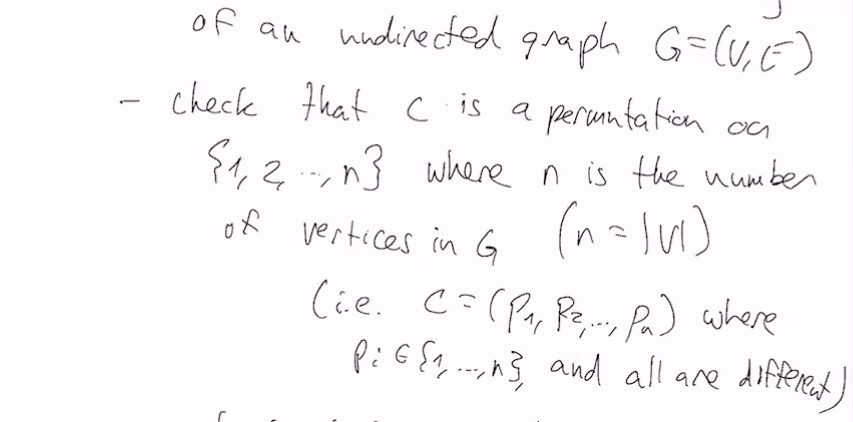 of an undirected graph G=(V,E)
- check that c is a permutation on
{1, 2, ..., n} where n is the number
of vertices in G (n = |V|)
(i.e. C = (p₁, p₂, ..., pₙ) where
pᵢ ∈ {1, ..., n}, and all are different)